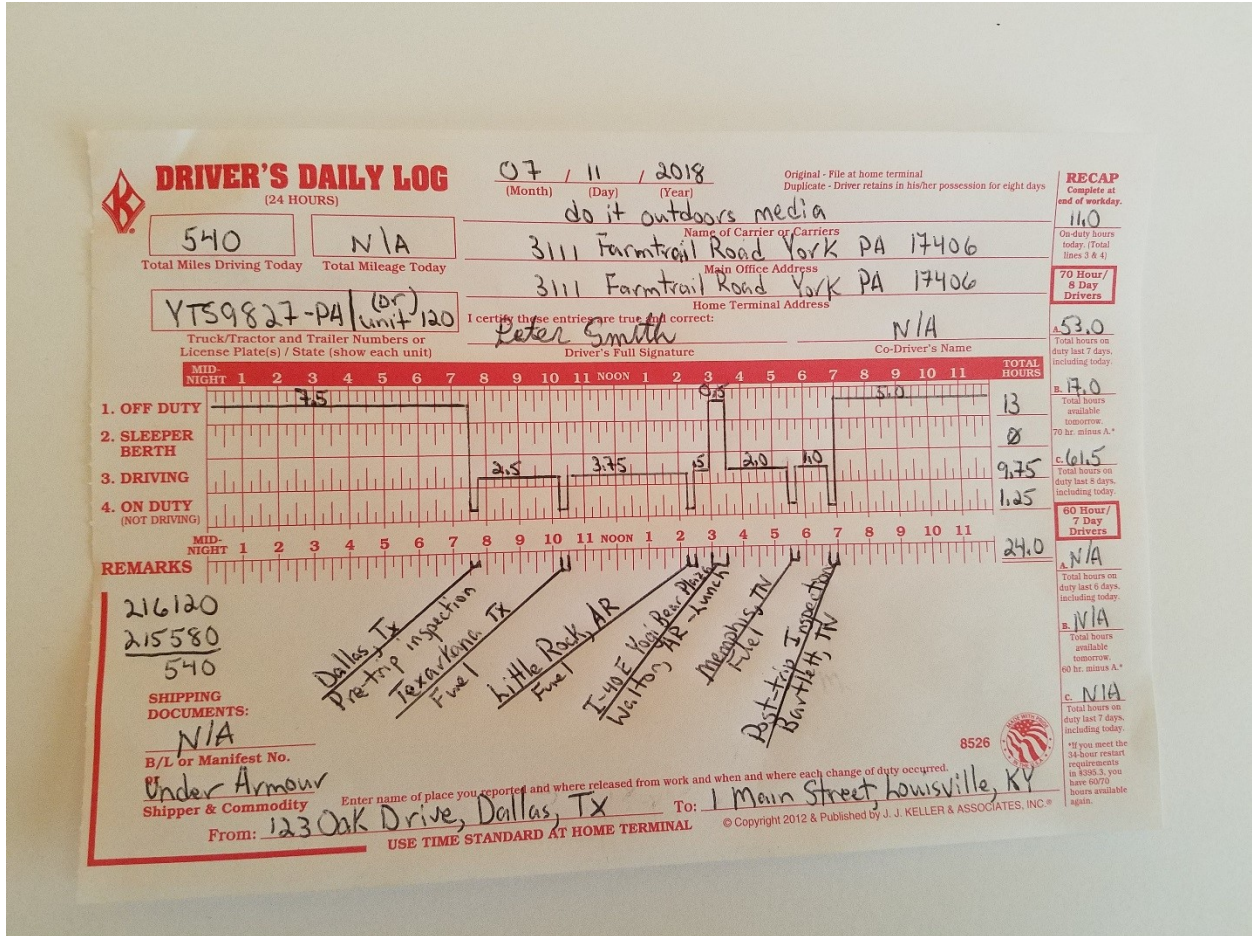 DRIVER'S DAILY LOG
(24 HOURS)
07 / 11 / 2018
(Month) (Day) (Year)
Original - File at home terminal
Duplicate - Driver retains in his/her possession for eight days
do it outdoors media
Name of Carrier or Carriers
540
Total Miles Driving Today
N/A
Total Mileage Today
3111 Farmtrail Road York PA 17406
Main Office Address
3111 Farmtrail Road York PA 17406
Home Terminal Address
YTS9827-PA/(or) unit 120
Truck/Tractor and Trailer Numbers or
License Plate(s) / State (show each unit)
I certify these entries are true and correct:
Peter Smith
Driver's Full Signature
N/A
Co-Driver's Name
MID-NIGHT 1 2 3 4 5 6 7 8 9 10 11 NOON 1 2 3 4 5 6 7 8 9 10 11 TOTAL HOURS
1. OFF DUTY 7.5 0.5 5.0 13
2. SLEEPER BERTH 0
3. DRIVING 2.5 3.75 .5 2.0 1.0 9.75
4. ON DUTY 1.25
(NOT DRIVING)
MID-NIGHT 1 2 3 4 5 6 7 8 9 10 11 NOON 1 2 3 4 5 6 7 8 9 10 11
24.0
REMARKS
216120
215580
540
Dallas, Tx
Pre-trip inspection
Texarkana Tx
Fuel
Little Rock, AR
Fuel
I-40E Yogi Bear Plaza
Walton, AR - Lunch
Memphis, TN
Fuel
Post-trip Inspection
Bartlett, TN
SHIPPING
DOCUMENTS:
N/A
B/L or Manifest No.
or
Under Armour
Shipper & Commodity
Enter name of place you reported and where released from work and when and where each change of duty occurred.
From: 123 Oak Drive, Dallas, Tx To: 1 Main Street, Louisville, KY
USE TIME STANDARD AT HOME TERMINAL
© Copyright 2012 & Published by J. J. KELLER & ASSOCIATES, INC.®
8526
MADE WITH PRIDE
IN THE U.S.A.
RECAP
Complete at
end of workday.
11.0
On-duty hours
today. (Total
lines 3 & 4)
70 Hour/
8 Day
Drivers
A. 53.0
Total hours on
duty last 7 days,
including today.
B. 17.0
Total hours
available
tomorrow.
70 hr. minus A.*
C. 61.5
Total hours on
duty last 8 days,
including today.
60 Hour/
7 Day
Drivers
A. N/A
Total hours on
duty last 6 days,
including today.
B. N/A
Total hours
available
tomorrow.
60 hr. minus A.*
C. N/A
Total hours on
duty last 7 days,
including today.
*If you meet the
34-hour restart
requirements
in §395.3, you
have 60/70
hours available
again.